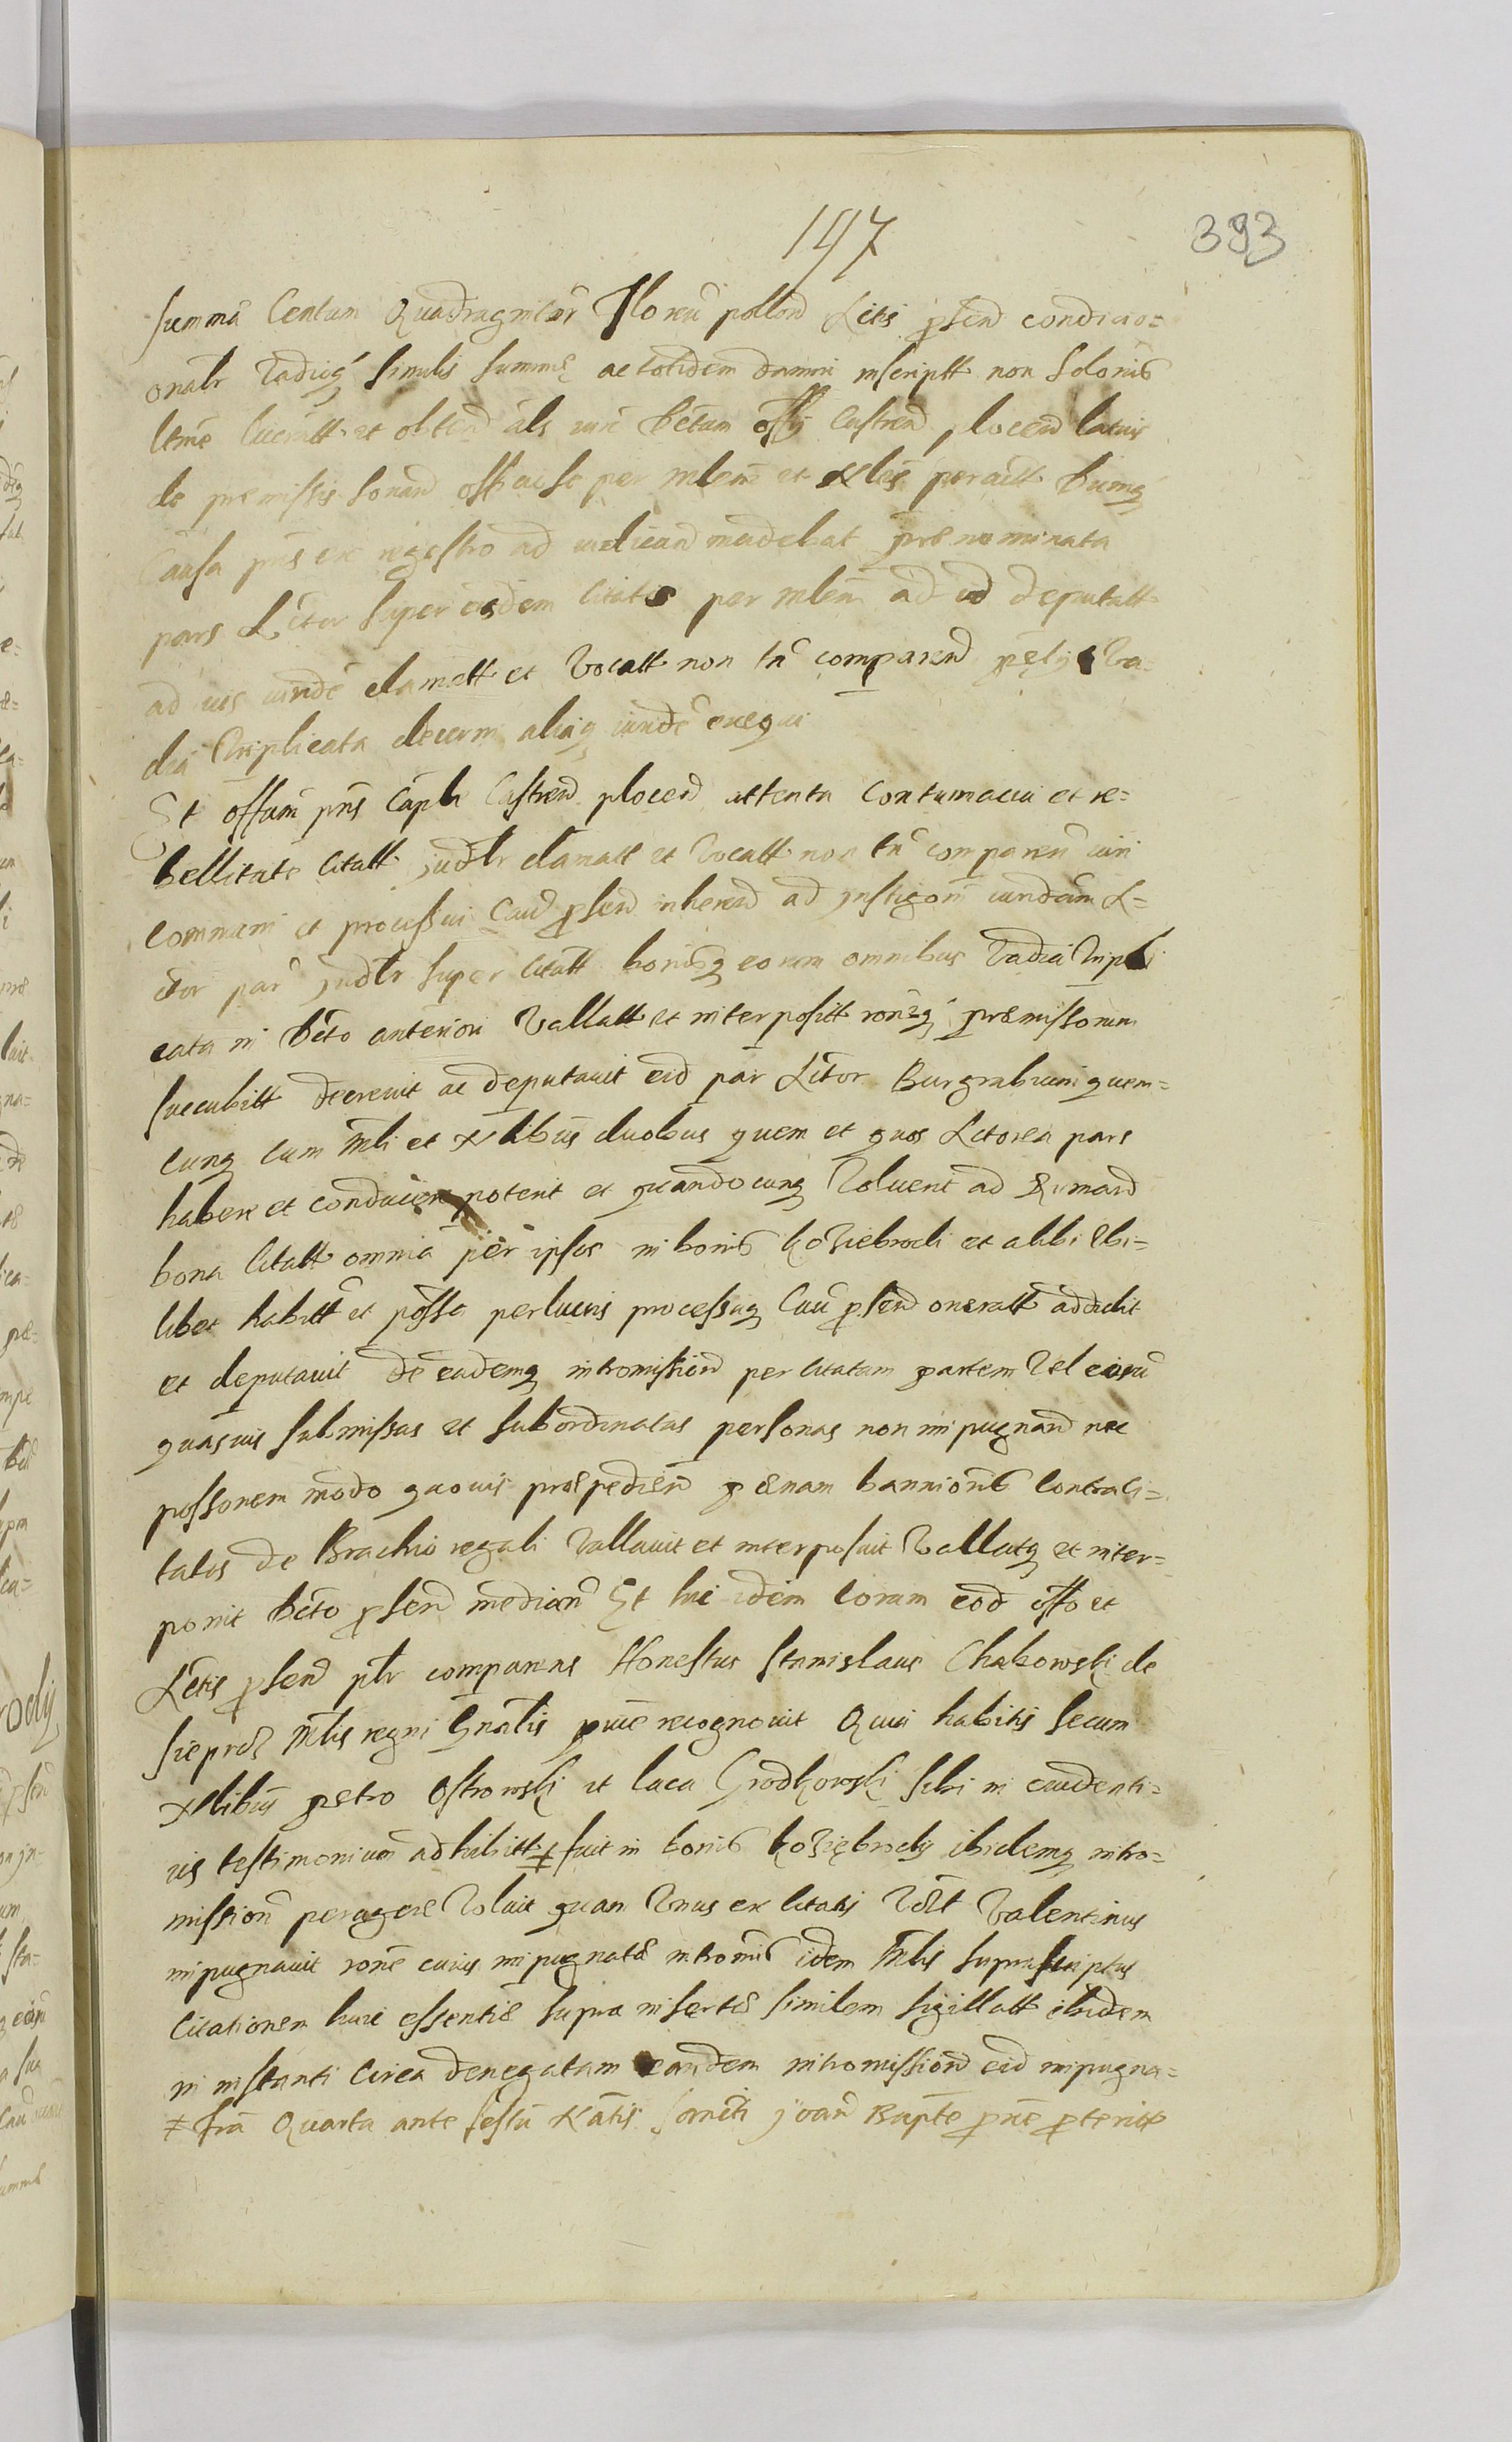 197
393
summa Centum Quadraginta Floren pollon Lctis psen condicio=
onalr vadioq simulis summę ac totidem damni inscriptt non solonis
ltme lucratt et obtend als iuri Dctum offij Castren plocen latius
de premissis sonan per mlem et peractt Dumq
Causa pns ex regestro ad iudican incidebat prænominata
pars Lctor super eisdem citatis per mlem ad id deputatt
ad ius iurde clamatt et vocatt non tn comparen petijt va=
dia triplicata decerni aliaq iurde exequi
Et offum pns Caple Castren plocen attenta contumacia et re=
bellitate citatt judlr clamatt et vocatt non tn comparen iuri
communi et processui Cau psen inheren ad instigoni iurdicam L=
ctor par judlr super citatt bonisq eorum omnibus vadia tripli
cata in Dcto anteriori vallatt et interpositt roneq præmissorum
succubitt decrevit ac deputavit eid par Lctor Burgrabium quem=
cunq cum mli et xlibus duobus quem et quos Lctorea pars
habere et conducere poterit et quandocunq voluerit ad
bona citatt omnia per ipsos in bonis Koziebrodi et alibi vbi=
libet habitt et possa per lucris processuq Cau psen oneratt addidit
et deputavit de eademq intromission per citatam partem vel eius
quasuis submissas et subordinatas personas non impugnand nec
possonem modo quouis præpedien pænam bannionis contra ci=
tatos de Brachio regali vallavit et interposuit vallatq et inter=
ponit Dcto psen median Et hic idem coram eod offo et
Lctis psen plr comparens Honestus Stanislaus Chakowski de
Sieprcz Mlis regni Gnalis puie recognovit Quia habitis secum
xlibus petro Ostrowski et luca Grodkowski sibi in euidenti=
us testimonium adhibitt ≠ fuit in bonis Koziębrody ibidemq intro=
mission peragere voluit quam vnus ex citatis Valentinus
impugnavit rone cuius impugnatæ intromis idem Mlis suprascriptus
citationem huic essentiæ supra insertæ similem sigillatt ibidem
in instanti circa denegatam eandem intromission eid impugna=
≠ fria Quarta ante festu Natis Sancti joan Bapte pxie pteritt